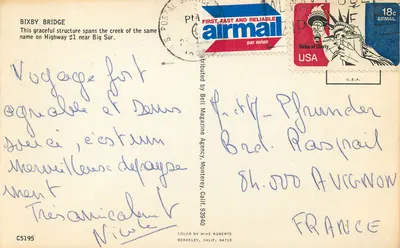 BIXBY BRIDGE
This graceful structure spans the creek of the same
name on Highway #1 near Big Sur.
Voyage fort
agréable et sans
souci, c'est un
merveilleux dépayse
ment
Très amicalement
Nicole
C5195
Distributed by Bell Magazine Agency, Monterey, Calif. 93940
COLOR BY MIKE ROBERTS
BERKELEY, CALIF. 94710
PM
FIRST, FAST AND RELIABLE
airmail
par avion
18c
AIRMAIL
Statue of Liberty
USA
U.S.A.
Pfrunder
Brd. Raspail
84.000 AVIGNON
FRANCE